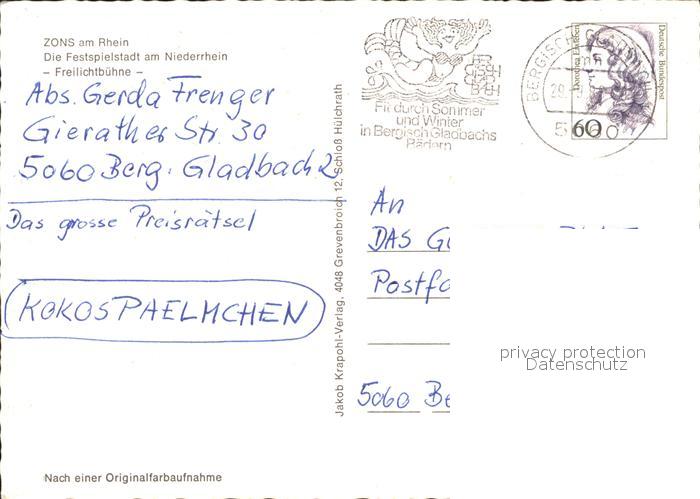 ZONS am Rhein
Die Festspielstadt am Niederrhein
- Freilichtbühne -
Abs. Gerda Frenger
Gierather Str. 30
5060 Berg. Gladbach 2
Das grosse Preisrätsel
KOKOSPAELMCHEN
Nach einer Originalfarbaufnahme
Jakob Krapohl-Verlag, 4048 Grevenbroich 12, Schloß Hülchrath
Fit durch Sommer
und Winter
in Bergisch Gladbachs
Bädern
BERGISCH GLADBACH
5060
Dorothea Erxleben
Deutsche Bundespost
60
An
DAS
Postfa
5060 Be
privacy protection
Datenschutz